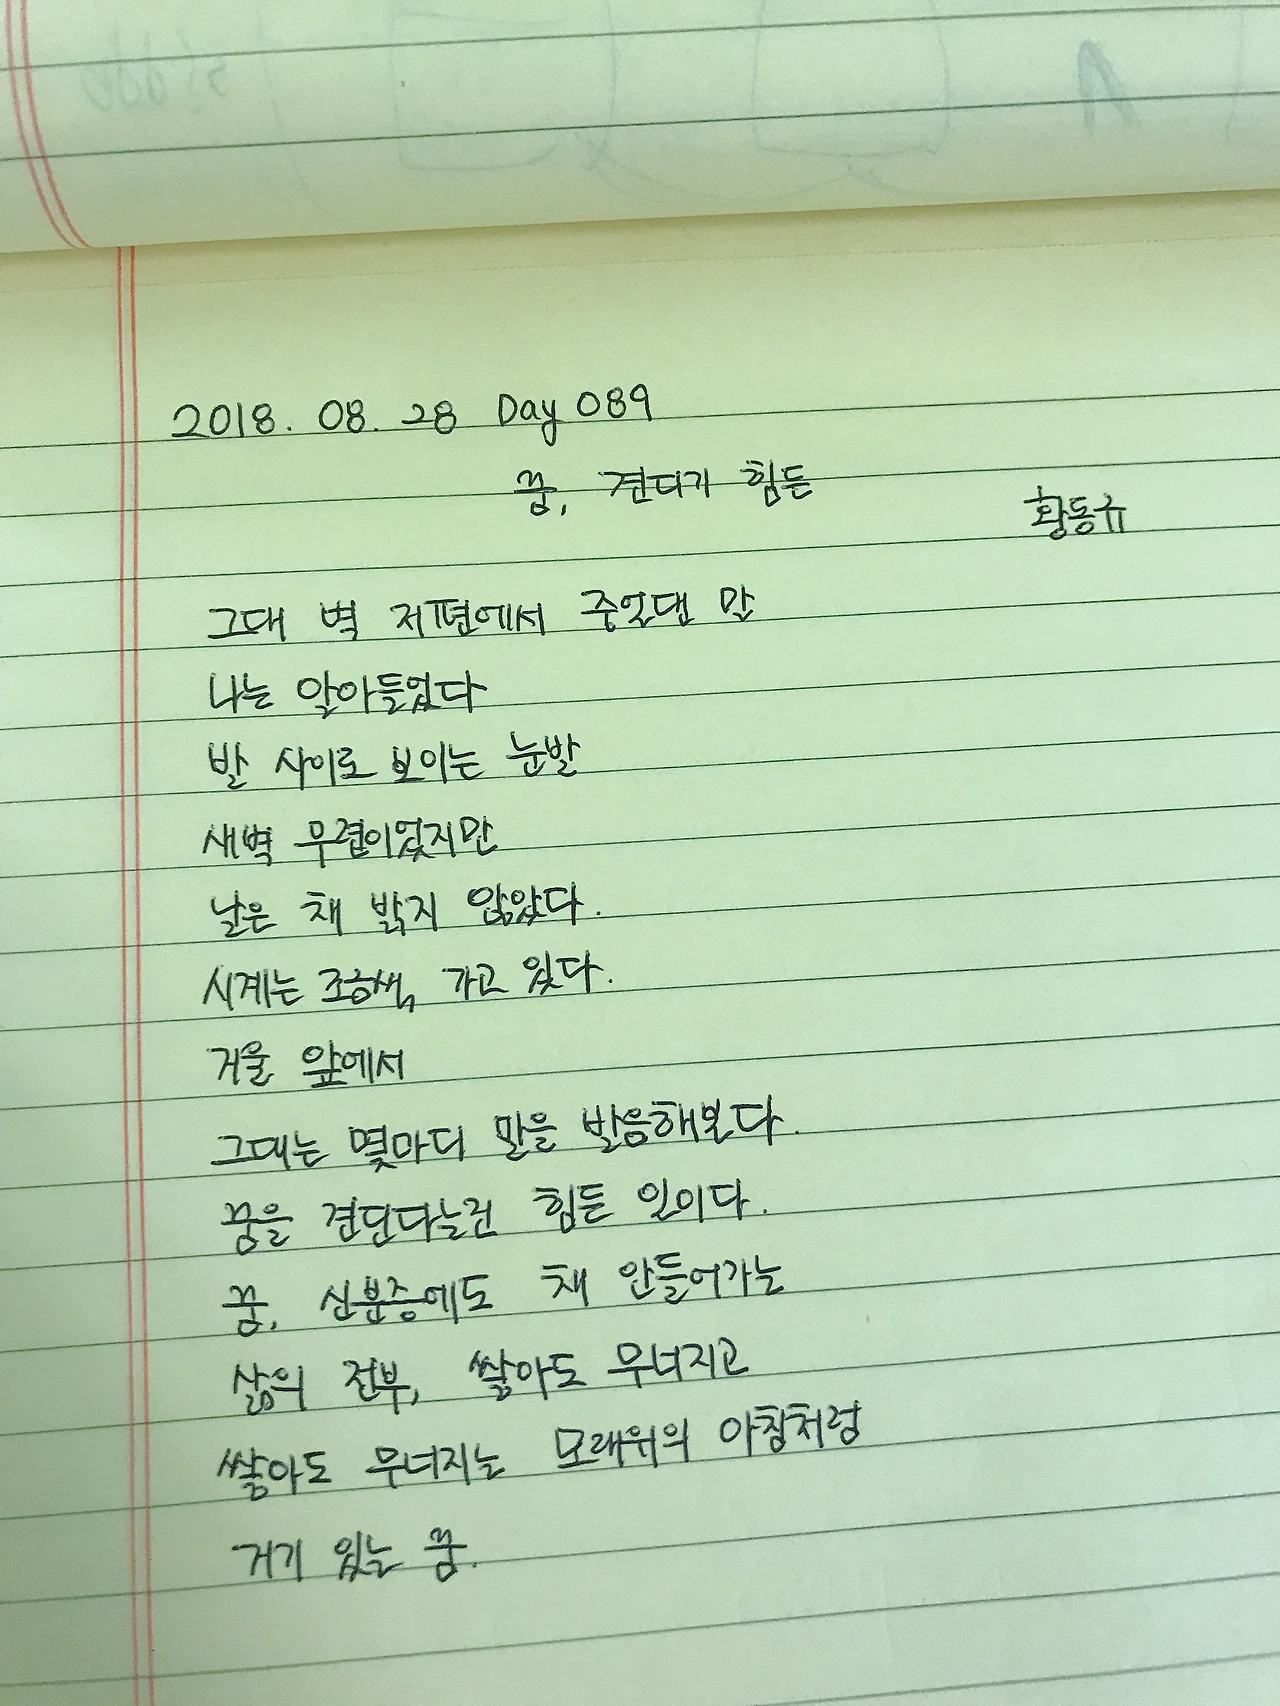 2018. 08. 28 Day 089
꿈, 견디기 힘든
황동규
그대 벽 저편에서 중얼댄 말
나는 알아들었다
발 사이로 보이는 눈발
새벽 무렵이었지만
날은 채 밝지 않았다.
시계는 조금씩, 가고 있다.
거울 앞에서
그대는 몇마디 말을 발음해본다.
꿈을 견딘다는건 힘든 일이다.
꿈, 신분증에도 채 안들어가는
삶의 전부, 쌓아도 무너지고
쌓아도 무너지는 모래위의 아침처럼
거기 있는 꿈.